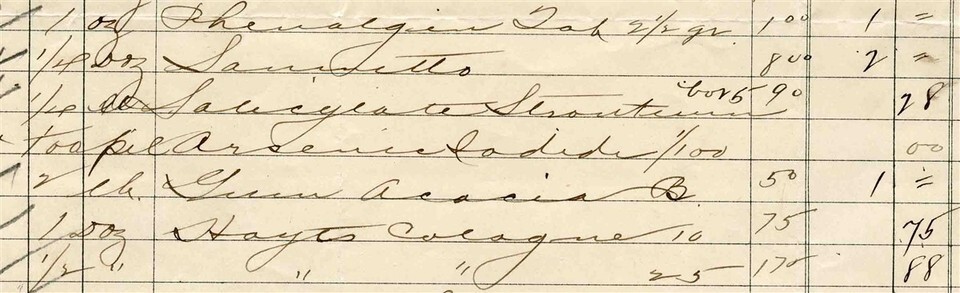 1 oz Phenalgin Tab 2 1/2 gr. 1 00 1 =
1/4 Doz Sanmetto 8 00 2 =
1/4 lb Salicylate Strontium box 5 90 28
100 pil Arsenic Iodide 1/100 00
2 lb. Gum Acacia B. 50 1 =
1 Doz Hoyts Cologne 10 75 75
1/2 " " " 25 1 75 88